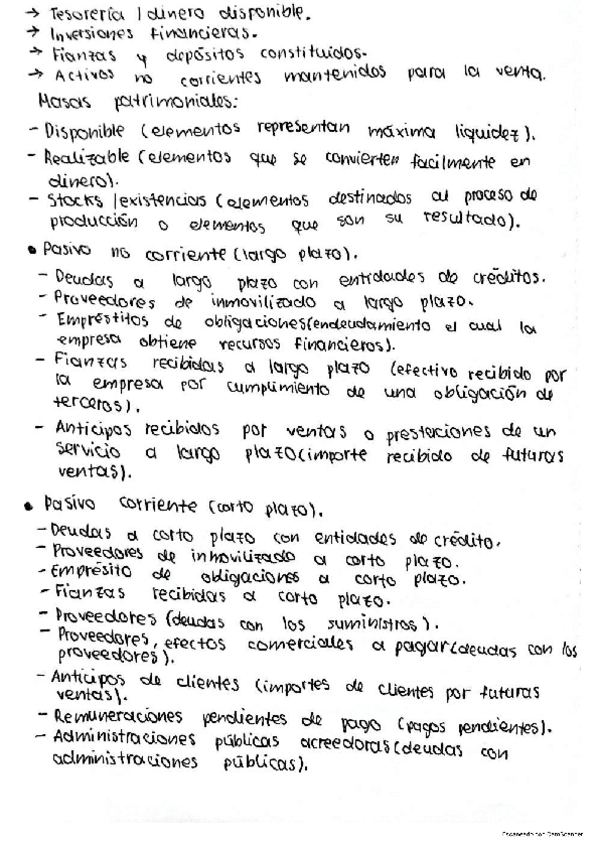 → Tesorería / dinero disponible.
→ Inversiones financieras.
→ Fianzas y depósitos constituidos.
→ Activos no corrientes mantenidos para la venta.
Masas patrimoniales:
- Disponible (elementos representan máxima liquidez).
- Realizable (elementos que se convierten facilmente en
dinero).
- Stocks / existencias (elementos destinados al proceso de
producción o elementos que son su resultado).
• Pasivo no corriente (largo plazo).
- Deudas a largo plazo con entidades de créditos.
- Proveedores de inmovilizado a largo plazo.
- Empréstitos de obligaciones (endeudamiento el cual la
empresa obtiene recursos financieros).
- Fianzas recibidas a largo plazo (efectivo recibido por
la empresa por cumplimiento de una obligación de
terceros).
- Anticipos recibidos por ventas o prestaciones de un
servicio a largo plazo (importe recibido de futuras
ventas).
• Pasivo corriente (corto plazo).
- Deudas a corto plazo con entidades de crédito.
- Proveedores de inmovilizado a corto plazo.
- Emprésito de obligaciones a corto plazo.
- Fianzas recibidas a corto plazo.
- Proveedores (deudas con los suministros).
- Proveedores, efectos comerciales a pagar (deudas con los
proveedores).
- Anticipos de clientes (importes de clientes por futuras
ventas).
- Remuneraciones pendientes de pago (pagos pendientes).
- Administraciones públicas acreedoras (deudas con
administraciones públicas).
Escaneado con CamScanner